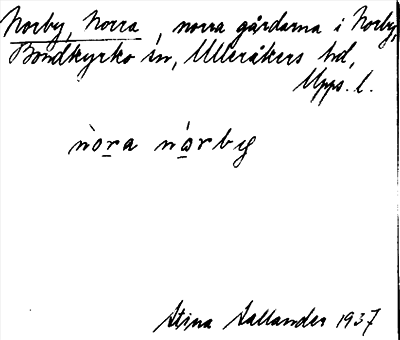 Norby, Norra, norra gårdarna i Norby,
Bondkyrko sn, Ulleråkers hd,
Upps. l.
nòra nòrby
Stina Sallander 1937